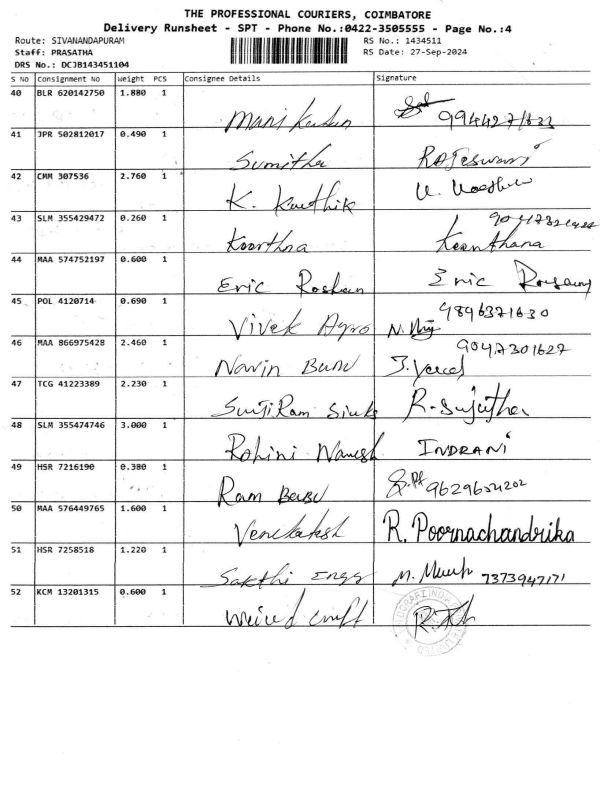 THE PROFESSIONAL COURIERS, COIMBATORE
Delivery Runsheet - SPT - Phone No.:0422-3505555 - Page No.:4
Route: SIVANANDAPURAM RS No.: 1434511
Staff: PRASATHA RS Date: 27-Sep-2024
DRS No.: DCJB143451104
S No Consignment No Weight PCS Consignee Details Signature
40 BLR 620142750 1.880 1
41 JPR 502812017 0.490 1
Sumitha Rajeswari
42 CMM 307536 2.760 1
K. Karthik
43 SLM 355429472 0.260 1
Keerthana
44 MAA 574752197 0.600 1
Eric Roshan Eric
45 POL 4120714 0.690 1
9896371630
Vivek Agro
46 MAA 866975428 2.460 1
9047301627
Navin Babu
47 TCG 41223389 2.230 1
R. Sujitha
48 SLM 355474746 3.000 1
Rohini INDRANI
49 HSR 7216190 0.380 1
Ram Babu 9629654202
50 MAA 576449765 1.600 1
Venkatesh R. Poornachandrika
51 HSR 7258518 1.220 1
Sakthi Engg 7373947171
52 KCM 13201315 0.600 1